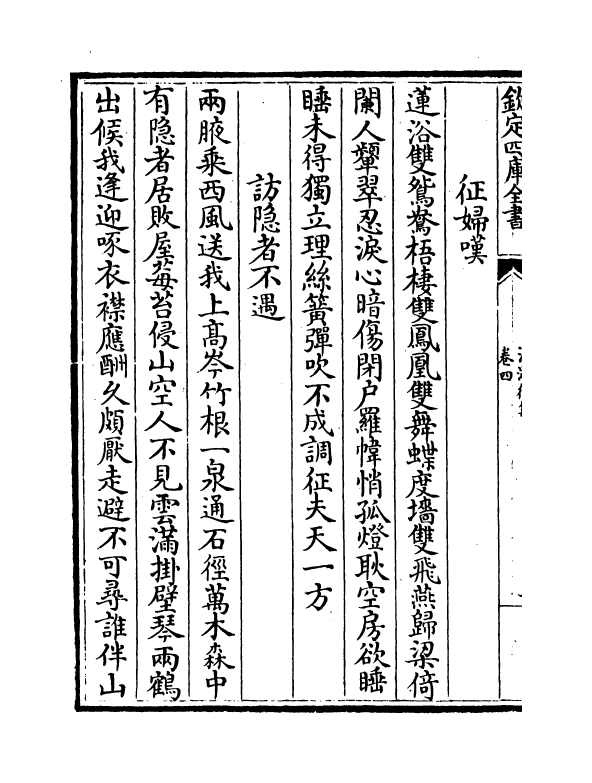 欽定四庫全書
卷四
征婦嘆
蓮浴雙鴛鴦梧棲雙鳳凰雙舞蝶度墻雙飛燕歸梁倚
闌人顰翠忍淚心暗傷閉户羅幃悄孤燈耿空房欲睡
睡未得獨立理絲簧彈吹不成調征夫天一方
訪隐者不遇
兩腋乘西風送我上高岑竹根一泉通石徑萬木森中
有隐者居敗屋莓苔侵山空人不見雲滿掛壁琴兩鶴
出候我逢迎啄衣襟應酬久頗厭走避不可尋誰伴山